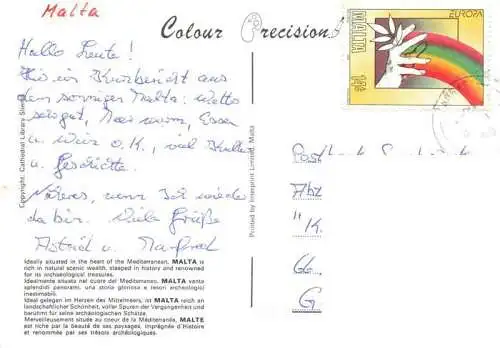 Malta
Colour Precision
Hallo Leute!
Hier ein Kurzbericht aus
dem sonnigen Malta: Wetter
sehr gut, Meer warm, Essen
u. Wein O.K., viel Kultur
u. Geschichte.
Näheres, wenn ich wieder
da bin. Viele Grüße
Astrid u. Manfred
Copyright: Cathedral Library
Printed by Interprint Limited, Malta
Ideally situated in the heart of the Mediterranean, MALTA is
rich in natural scenic wealth, steeped in history and renowned
for its archaeological treasures.
Idealmente situata nel cuore del Mediterraneo, MALTA vanta
splendidi panorami, una storia gloriosa e tesori archeologici
inestimabili.
Ideal gelegen im Herzen des Mittelmeers, ist MALTA reich an
landschaftlicher Schönheit, voller Spuren der Vergangenheit und
berühmt für seine archäologischen Schätze.
Merveilleusement située au coeur de la Méditerranée, MALTE
est riche par la beauté de ses paysages, imprégnée d'Histoire
et renommée par ses trésors archéologiques.
EUROPA
MALTA
14c
Abt
"K.
66.
G